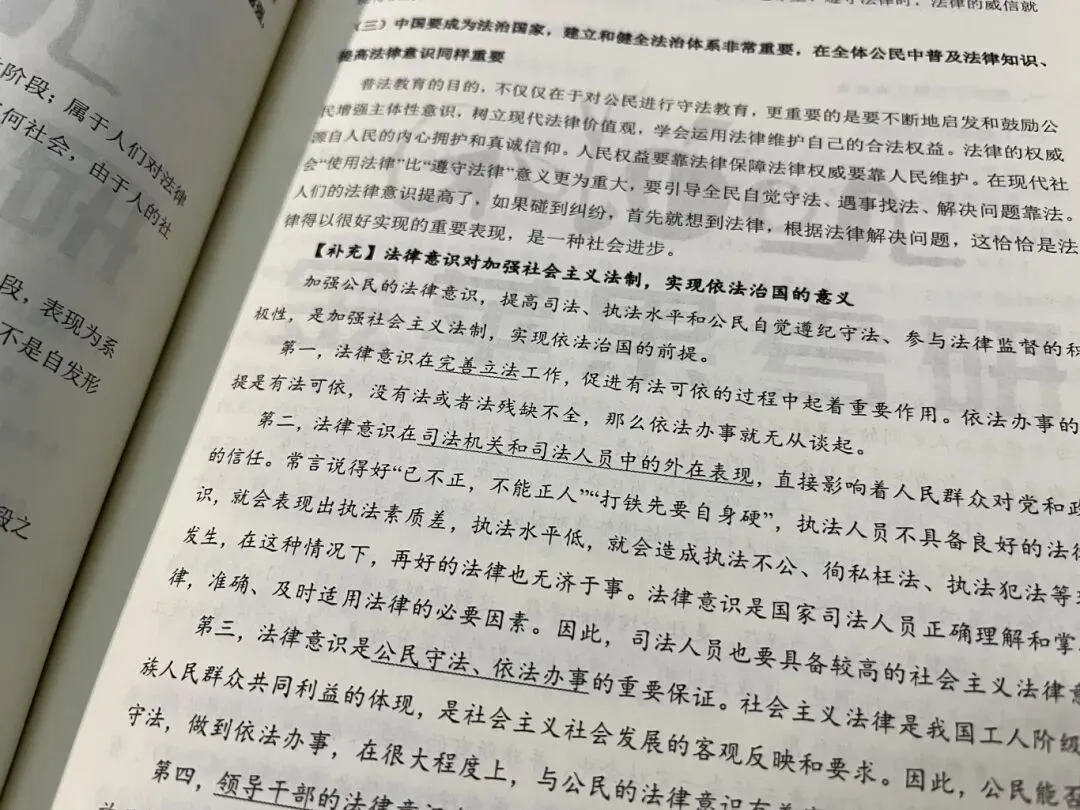 阶段；属于人们对法律
何社会，由于人的社
段，表现为系
不是自发形
段之
遵守法律时，法律的威信就
（三）中国要成为法治国家，建立和健全法治体系非常重要，在全体公民中普及法律知识、
提高法律意识同样重要
普法教育的目的，不仅仅在于对公民进行守法教育，更重要的是要不断地启发和鼓励公
民增强主体性意识，树立现代法律价值观，学会运用法律维护自己的合法权益。法律的权威
源自人民的内心拥护和真诚信仰。人民权益要靠法律保障法律权威要靠人民维护。在现代社
会“使用法律”比“遵守法律”意义更为重大，要引导全民自觉守法、遇事找法、解决问题靠法。
人们的法律意识提高了，如果碰到纠纷，首先就想到法律，根据法律解决问题，这恰恰是法
律得以很好实现的重要表现，是一种社会进步。
【补充】法律意识对加强社会主义法制，实现依法治国的意义
加强公民的法律意识，提高司法、执法水平和公民自觉遵纪守法、参与法律监督的积
极性，是加强社会主义法制，实现依法治国的前提。
第一，法律意识在完善立法工作，促进有法可依的过程中起着重要作用。依法办事的
提是有法可依，没有法或者法残缺不全，那么依法办事就无从谈起。
第二，法律意识在司法机关和司法人员中的外在表现，直接影响着人民群众对党和政
的信任。常言说得好“己不正，不能正人”“打铁先要自身硬”，执法人员不具备良好的法律
识，就会表现出执法素质差，执法水平低，就会造成执法不公、徇私枉法、执法犯法等
发生，在这种情况下，再好的法律也无济于事。法律意识是国家司法人员正确理解和掌
律，准确、及时适用法律的必要因素。因此，司法人员也要具备较高的社会主义法律意
第三，法律意识是公民守法、依法办事的重要保证。社会主义法律是我国工人阶级
族人民群众共同利益的体现，是社会主义社会发展的客观反映和要求。因此，公民能否
守法，做到依法办事，在很大程度上，与公民的法律意识有关
第四，领导干部的法律意识